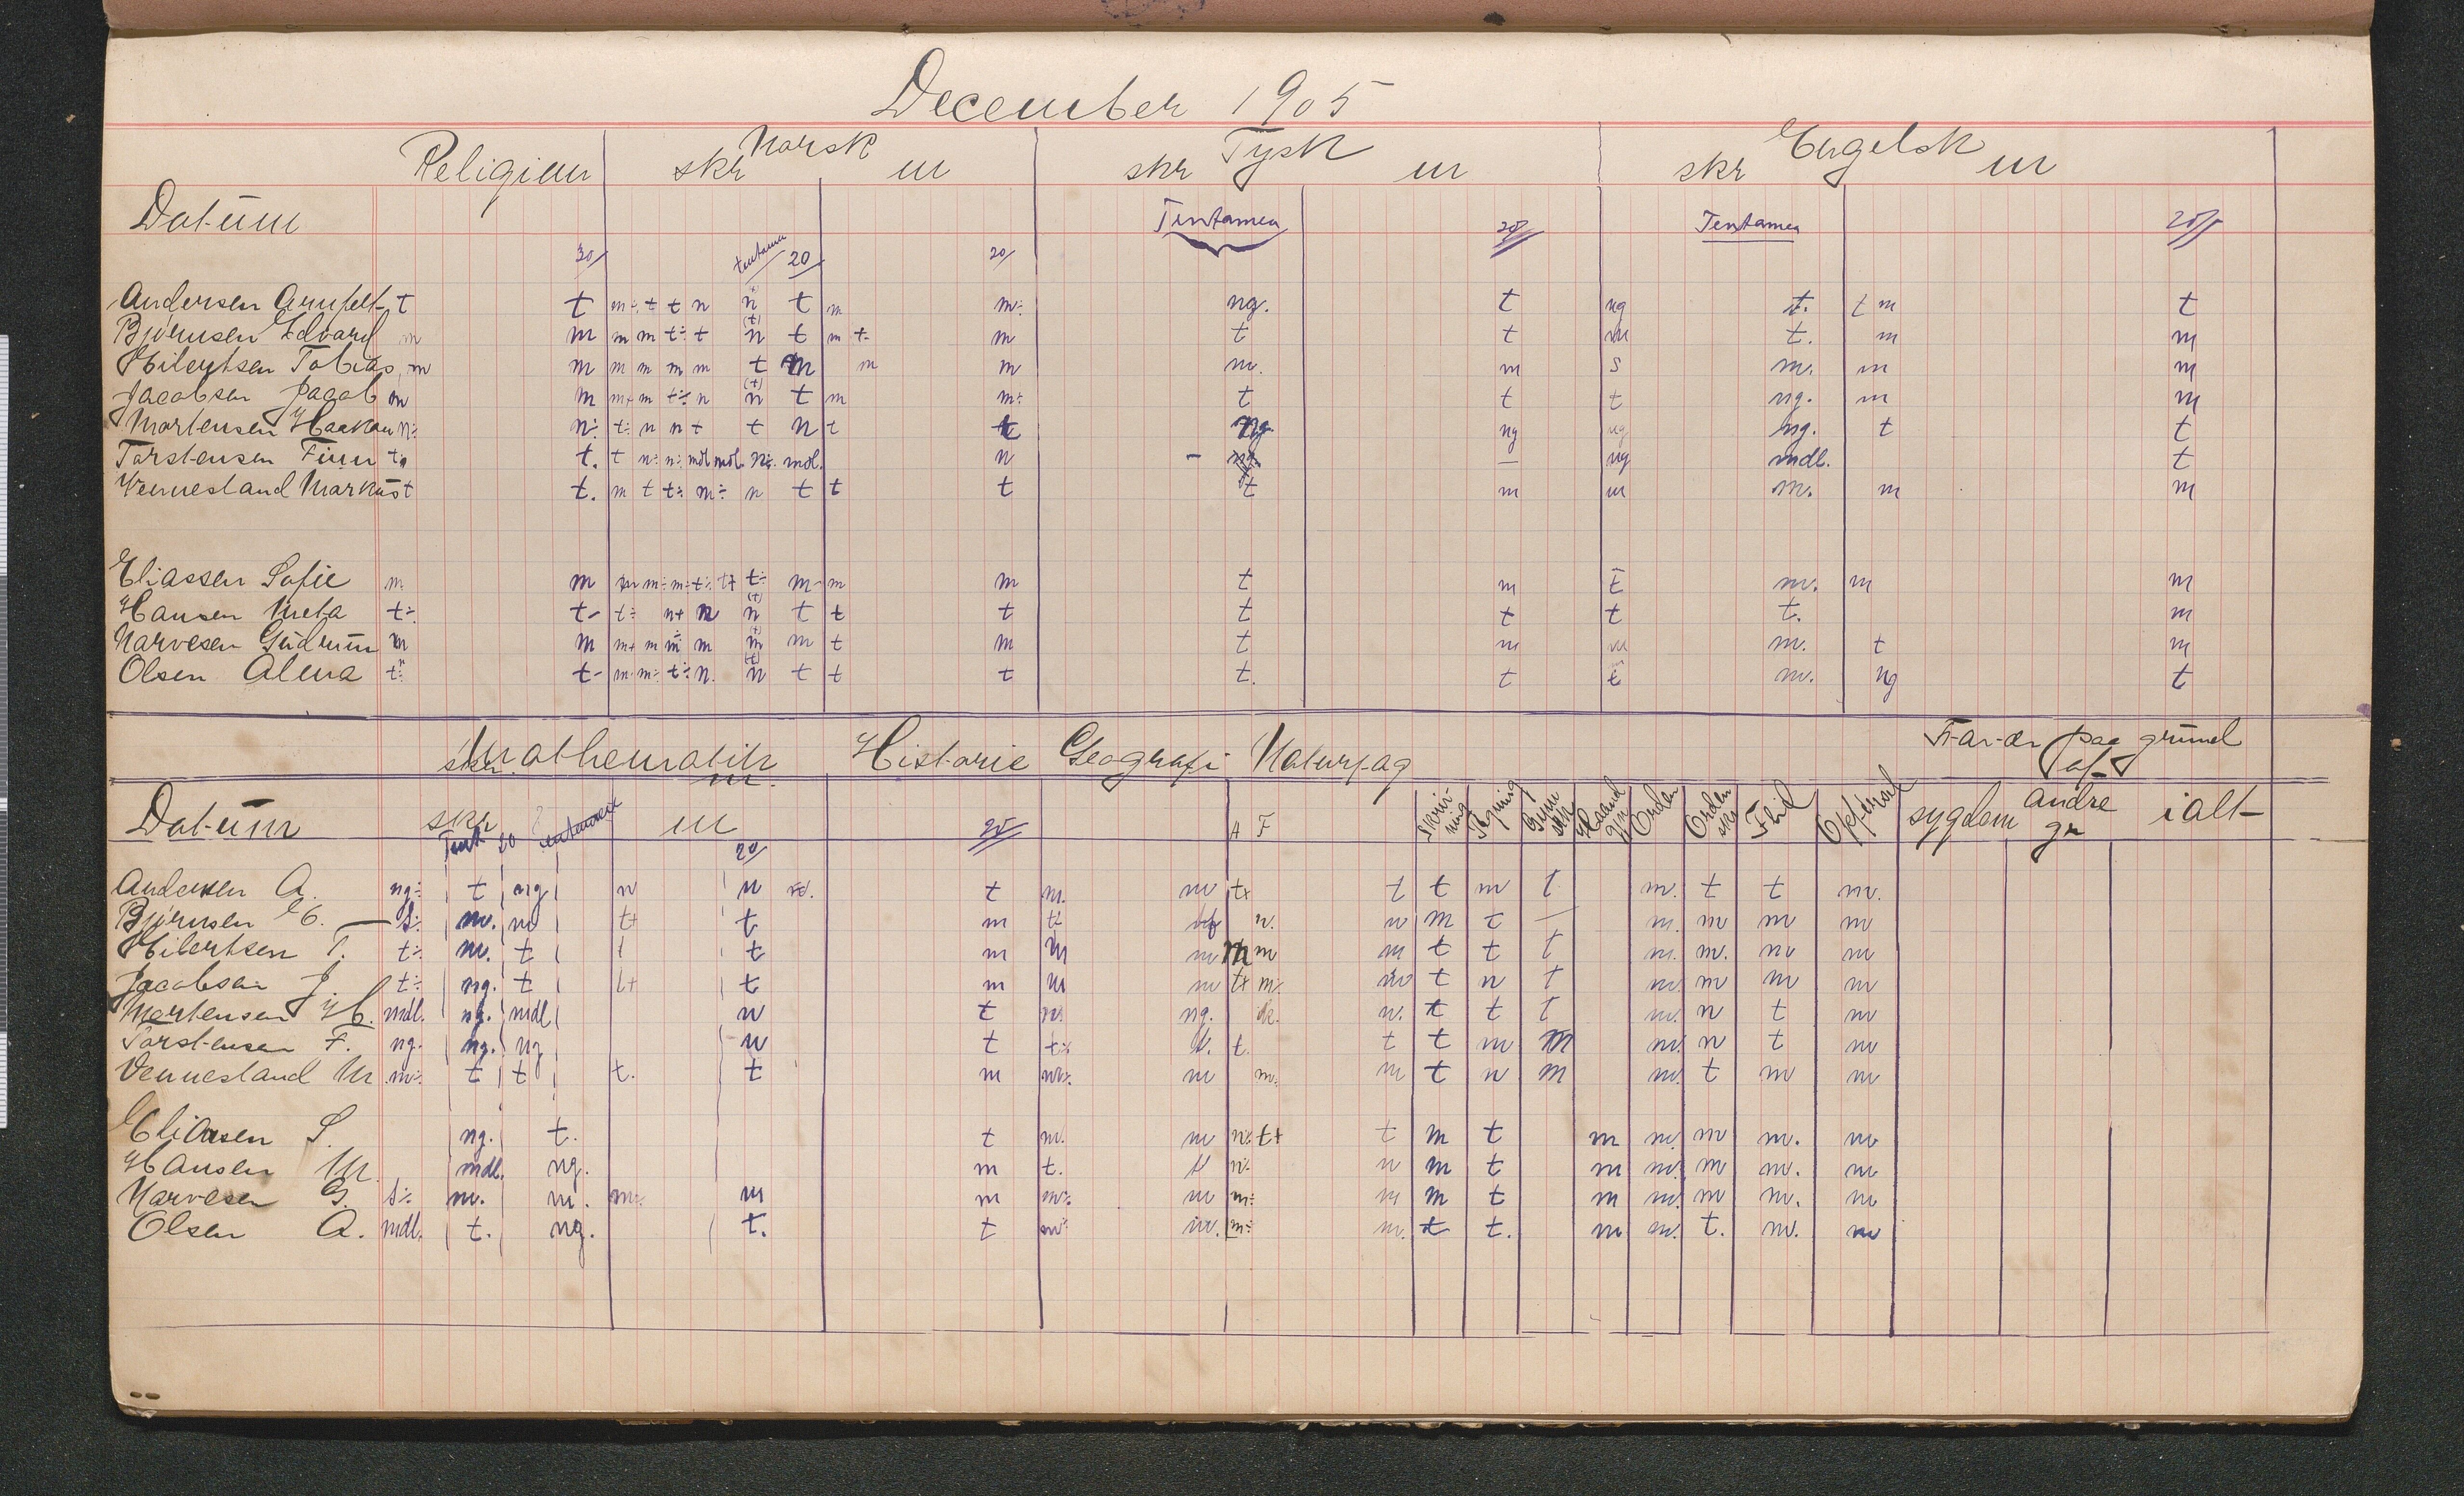 December 1905
Religion skr Norsk m skr Tysk m skr Engelsk m
Datum Tentamen 20/ Tentamen 20/
30/ tentamen 20/ 20/
Andersen t t m÷ t t n n (t) t m m÷ ng. t ng t. t m t
Bjørnsen Edvard m m m m t÷ t n (t) t m t m t t m t. m m
Eilertsen Tobias m m m m m m t m m m m. m s m. m m
Jacobsen Jacob m m m+ m t÷ n n (t) t m m÷ t t t ng. m m
Mortensen Haakon n÷ n÷ t÷ n n t t n t t ng ng ng ng. t t
Torstensen Finn t t. t n÷ n÷ mdl mdl. n÷. mdl. n – — ng mdl. t
Vennesland Markus t t. m t t÷ m÷ n t t t t m m m. m m
Eliassen Sofie m m m m÷ m÷ t÷ t+ t÷ m- m m t m t m. m m
Hansen Meta t÷ t- t÷ n+ n n (t) t t t t t t t. m
Narvesen Gudrun m m m+ m m m m m t m t m m m. t m
Olsen Alma t÷ t- m m÷ t÷ n. n (t) t t t t. t t m. ng t
skr. Mathematik m. Historie Geografi Naturfag Fravær paa grund af
Datum skr Tent 20 tentamen m 20/ 20/ H F Skrivning Tegning Gymastk Haandgjr Orden Orden skr Flid Opførsel sygdom andre gr ialt
Andersen A. ng÷ t ng n n t m. m t+ t t m t m. t t m.
Bjørnsen E. — s÷ m. m t+ t m t÷ n. n m t — m. m m m
Eilertsen T. t÷ m. t t t m m m m m m t t t m. m. m m
Jacobsen J. t÷ ng. t t+ t m m m t+ m÷ m t n t m. m m m
Mortensen H. mdl. ng. mdl n t n. ng. n. t t t m. n t m
Torstensen F. ng. ng. ng n t t÷ t. t. t t m m m. n t m
Vennesland M. m÷ t t t. t m m÷ m m. m t n m m. t m m
Eliassen S. ng. t. t m. m n÷ t+ t m t m m. m m. m
Hansen M. mdl. ng. m t. t n÷ n m t m m. m m. m
Narvesen G. s÷ m. m. m÷ m m m÷ m m÷ m m t m m. m m. m
Olsen A. mdl. t. ng. t. t m÷ m. m÷ m. t t. m m. t. m. m